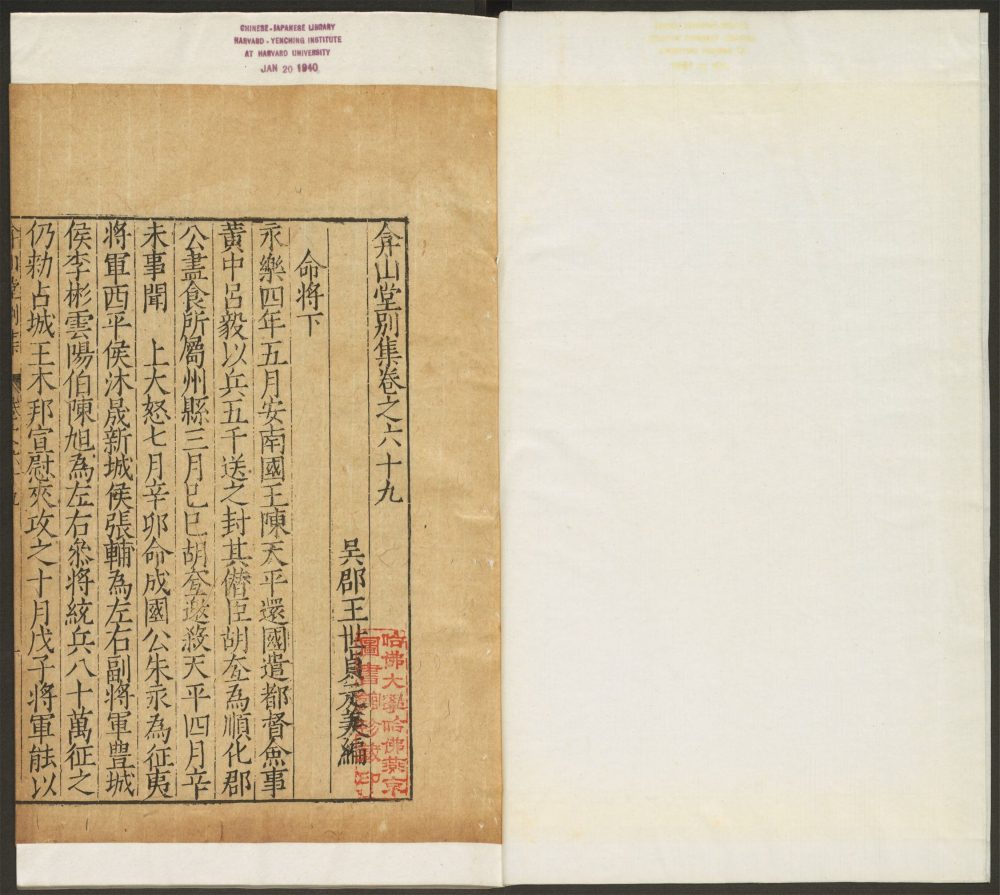 CHINESE-JAPANESE LIBRARY
HARVARD-YENCHING INSTITUTE
AT HARVARD UNIVERSITY
JAN 20 1940
弇山堂別集卷之六十九
吳郡王世貞元美編
命將下
永樂四年五月安南國王陳天平還國遣都督僉事
黃中呂毅以兵五千送之封其僭臣胡𡗨為順化郡
公盡食所屬州縣三月巳巳胡𡗨邀殺天平四月辛
未事聞 上大怒七月辛卯命成國公朱永為征夷
將軍西平侯沐晟新城侯張輔為左右副將軍豐城
侯李彬雲陽伯陳旭為左右叅將統兵八十萬征之
仍勑占城王木邦宣慰夾攻之十月戊子將軍能以
哈佛大學哈佛燕京
圖書館珍藏印